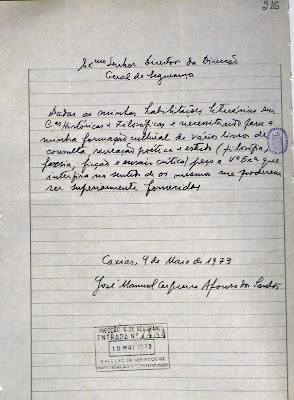 216
Ex.mo Senhor Director da Direcção
Geral de Segurança
Dadas as minhas habilitações literárias em
C.as Históricas e Filosóficas e necessitando para a
minha formação cultural de vários livros de
consulta, recreação poética e estudo (filosofia,
poesia, ficção e ensaio crítico) peço a V.ª Ex.ª que
interfira no sentido de os mesmos me poderem
ser superiormente fornecidos
Caxias, 9 de Maio de 1973
José Manuel Cerqueira Afonso dos Santos
DIRECÇÃO G. DE SEGURANÇA
ENTRADA Nº
10 MAI 1973
DIRECÇÃO DE SERVIÇOS DE
INVESTIGAÇÃO E CONTENCIOSO